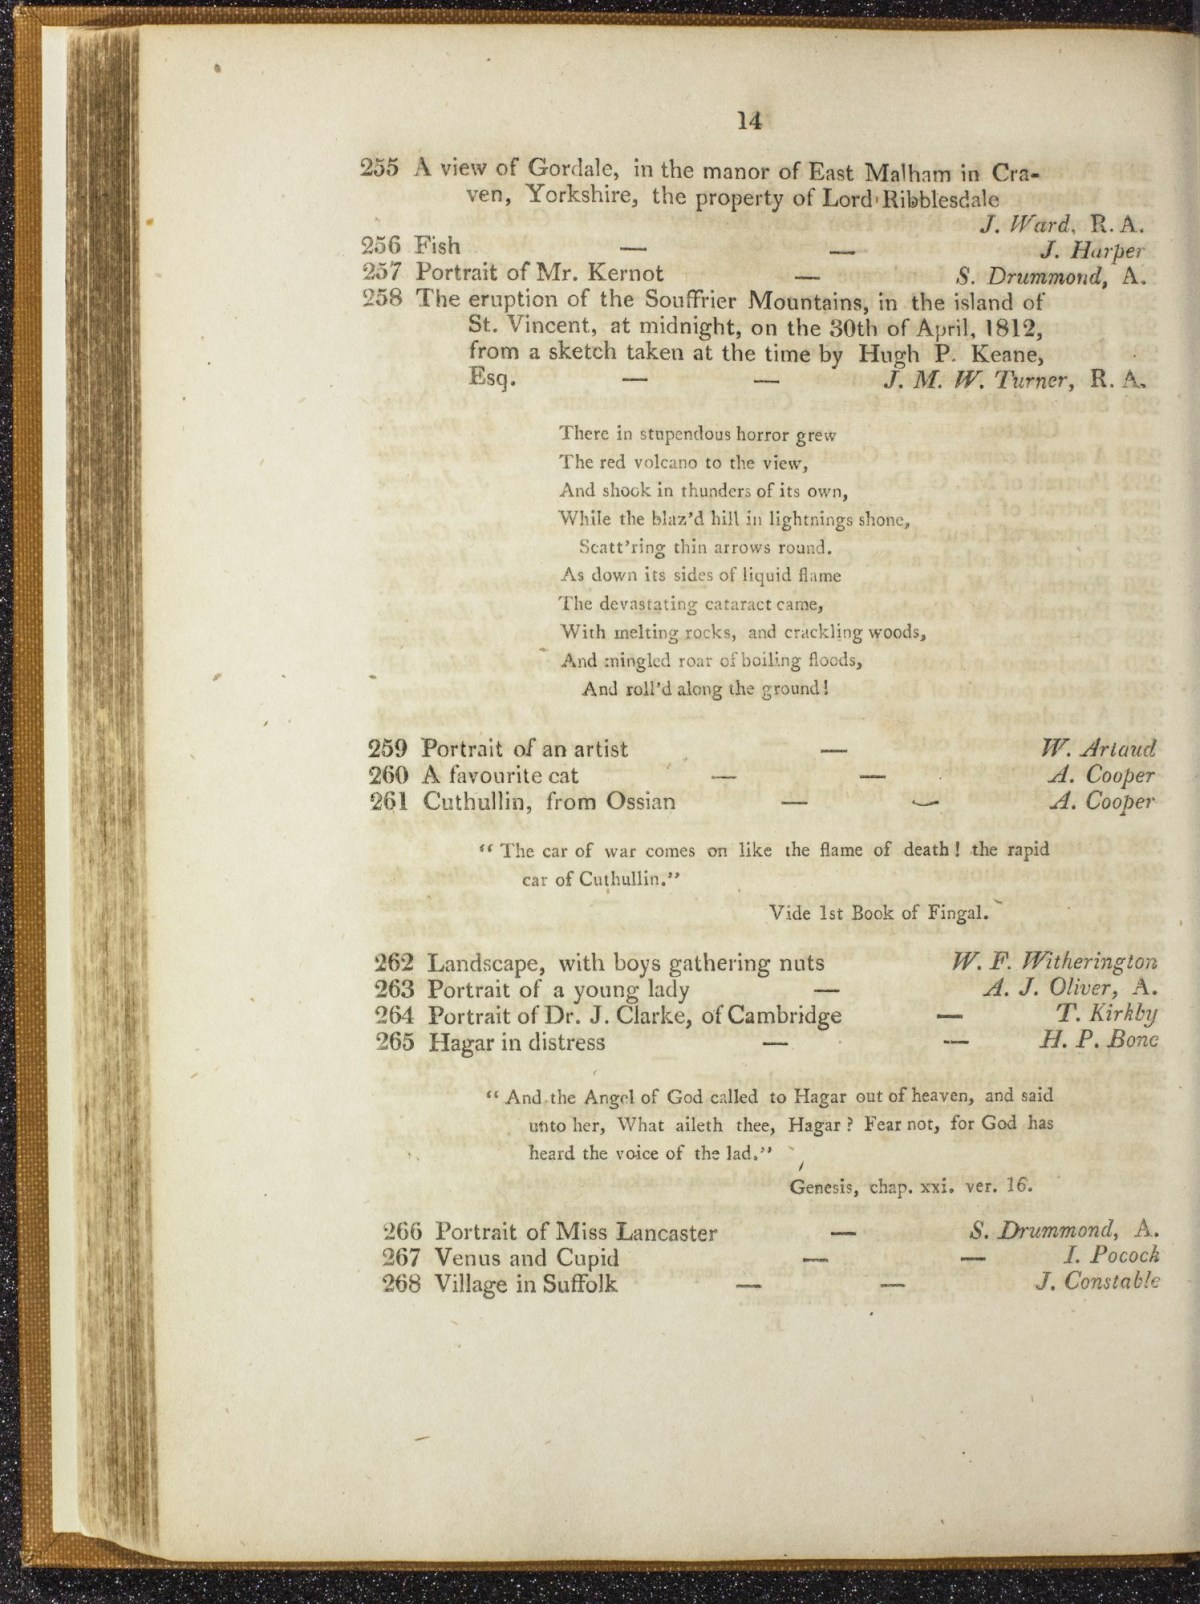 14
255 A view of Gordale, in the manor of East Malham in Cra-
ven, Yorkshire, the property of Lord Ribblesdale
J. Ward, R. A.
256 Fish — — J. Harper
257 Portrait of Mr. Kernot — S. Drummond, A.
258 The eruption of the Souffrier Mountains, in the island of
St. Vincent, at midnight, on the 30th of April, 1812,
from a sketch taken at the time by Hugh P. Keane,
Esq. — — J. M. W. Turner, R. A.
There in stupendous horror grew
The red volcano to the view,
And shook in thunders of its own,
While the blaz'd hill in lightnings shone,
Scatt'ring thin arrows round.
As down its sides of liquid flame
The devastating cataract came,
With melting rocks, and crackling woods,
And mingled roar of boiling floods,
And roll'd along the ground!
259 Portrait of an artist — W. Artaud
260 A favourite cat — — A. Cooper
261 Cuthullin, from Ossian — — A. Cooper
"The car of war comes on like the flame of death! the rapid
car of Cuthullin."
Vide 1st Book of Fingal.
262 Landscape, with boys gathering nuts W. F. Witherington
263 Portrait of a young lady — A. J. Oliver, A.
264 Portrait of Dr. J. Clarke, of Cambridge — T. Kirkby
265 Hagar in distress — — H. P. Bone
"And the Angel of God called to Hagar out of heaven, and said
unto her, What aileth thee, Hagar? Fear not, for God has
heard the voice of the lad."
Genesis, chap. xxi. ver. 16.
266 Portrait of Miss Lancaster — S. Drummond, A.
267 Venus and Cupid — — I. Pocock
268 Village in Suffolk — — J. Constable